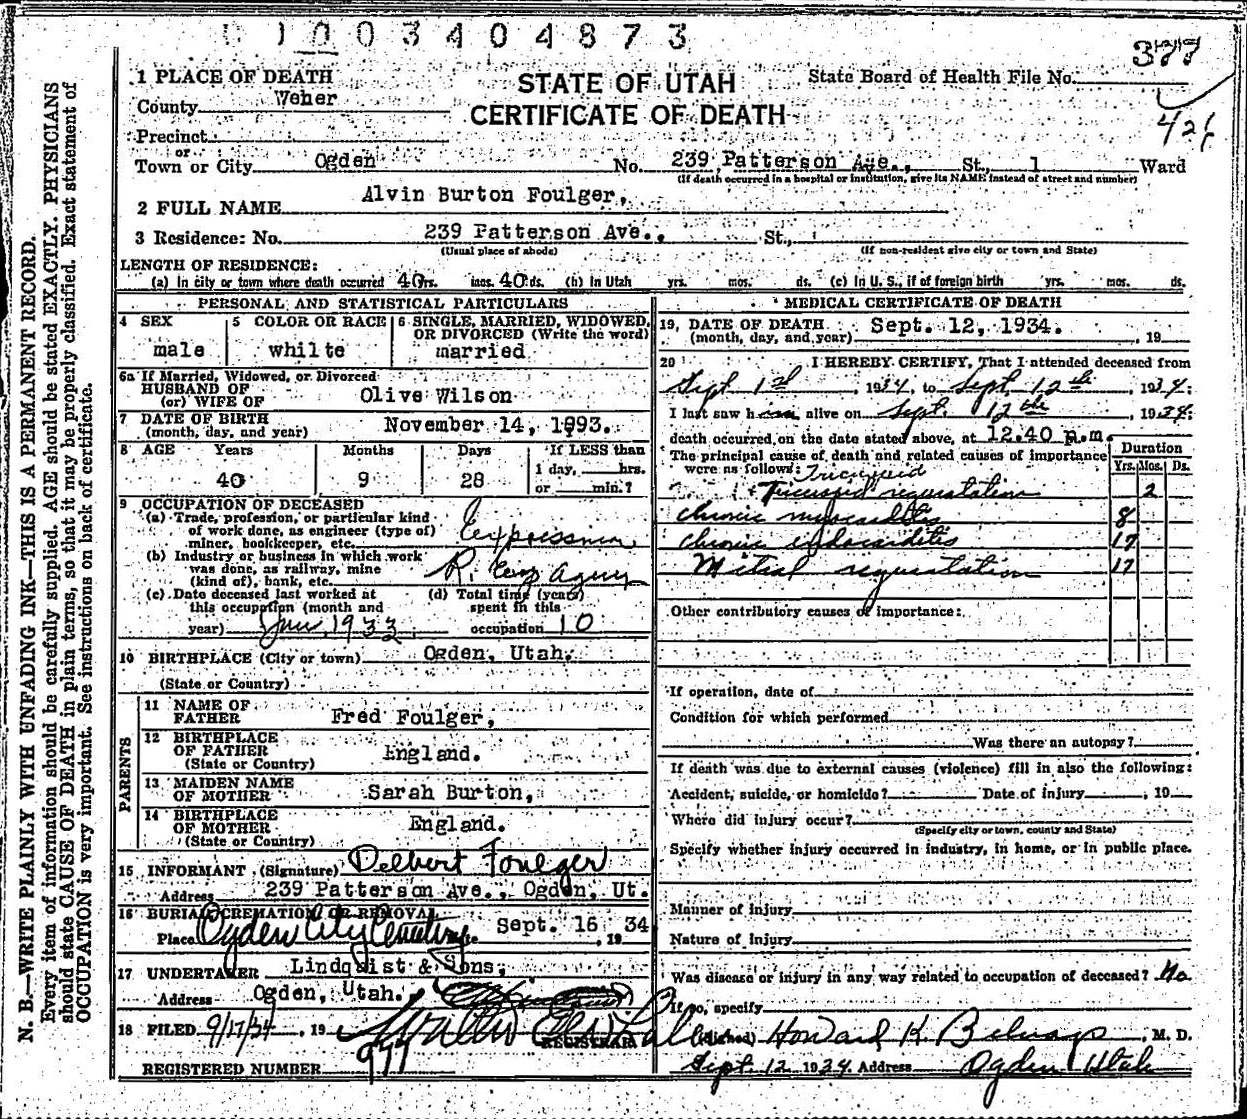 1003404873
377
1 PLACE OF DEATH
STATE OF UTAH
State Board of Health File No.
County Weber
CERTIFICATE OF DEATH
Precinct
or
Town or City Ogden No. 239 Patterson Ave., St., 1 Ward
(If death occurred in a hospital or institution, give its NAME instead of street and number)
2 FULL NAME Alvin Burton Foulger,
3 Residence: No. 239 Patterson Ave., St.,
(Usual place of abode) (If non-resident give city or town and State)
LENGTH OF RESIDENCE:
(a) In city or town where death occurred 40 yrs. mos. 40 ds. (b) In Utah yrs. mos. ds. (c) In U. S., if of foreign birth yrs. mos. ds.
PERSONAL AND STATISTICAL PARTICULARS
4 SEX male
5 COLOR OR RACE whilte
6 SINGLE, MARRIED, WIDOWED, OR DIVORCED (Write the word) married
6a If Married, Widowed, or Divorced
HUSBAND OF
(or) WIFE OF Olive Wilson
7 DATE OF BIRTH
(month, day, and year) November 14, 1893.
8 AGE Years Months Days If LESS than
1 day, hrs.
40 9 28 or min.?
9 OCCUPATION OF DECEASED
(a) Trade, profession, or particular kind
of work done, as engineer (type of)
miner, bookkeeper, etc. Expressman
(b) Industry or business in which work
was done, as railway, mine
(kind of), bank, etc. R. Exp Agency
(c) Date deceased last worked at
this occupation (month and
year) 1933
(d) Total time (years)
spent in this
occupation 10
10 BIRTHPLACE (City or town) Ogden, Utah.
(State or Country)
PARENTS
11 NAME OF
FATHER Fred Foulger,
12 BIRTHPLACE
OF FATHER England.
(State or Country)
13 MAIDEN NAME
OF MOTHER Sarah Burton,
14 BIRTHPLACE
OF MOTHER England.
(State or Country)
15 INFORMANT (Signature) Delbert Foulger
Address 239 Patterson Ave., Ogden, Ut.
16 BURIAL, CREMATION OR REMOVAL
Place Ogden City Cemetery Date Sept. 16 , 19 34
17 UNDERTAKER Lindquist & Sons,
Address Ogden, Utah.
18 FILED 9/17/34 , 19
REGISTRAR
REGISTERED NUMBER 977
MEDICAL CERTIFICATE OF DEATH
19, DATE OF DEATH Sept. 12, 1934.
(month, day, and year) , 19
20 I HEREBY CERTIFY, That I attended deceased from
Sept 1st , 1934, to Sept, 12th , 1934:
I last saw him alive on Sept. 12th , 1934:
death occurred on the date stated above, at 12:40 p.m.
The principal cause of death and related causes of importance
were as follows: Duration
Yrs. Mos. Ds.
Tricuspid
Tricuspid regurgitation 2
chronic myocarditis 8
chronic endocarditis 17
Mitral regurgitation 17
Other contributory causes of importance:
If operation, date of
Condition for which performed
Was there an autopsy?
If death was due to external causes (violence) fill in also the following:
Accident, suicide, or homicide? Date of injury , 19
Where did injury occur?
(Specify city or town, county and State)
Specify whether injury occurred in industry, in home, or in public place.
Manner of injury
Nature of injury
Was disease or injury in any way related to occupation of deceased? No
If so, specify
(Signed) Howard K. Belnap , M. D.
Sept. 12 1934 Address Ogden Utah
N. B.—WRITE PLAINLY WITH UNFADING INK—THIS IS A PERMANENT RECORD.
Every item of information should be carefully supplied. AGE should be stated EXACTLY. PHYSICIANS
should state CAUSE OF DEATH in plain terms, so that it may be properly classified. Exact statement of
OCCUPATION is very important. See instructions on back of certificate.